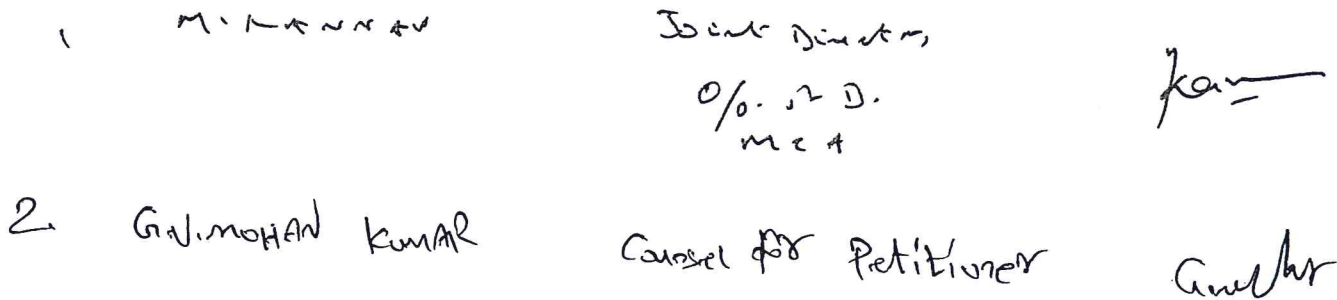 1 M. KANNAN Joint Director,
O/o. RD.
MCA
2. G.V. MOHAN KUMAR Counsel for Petitioner